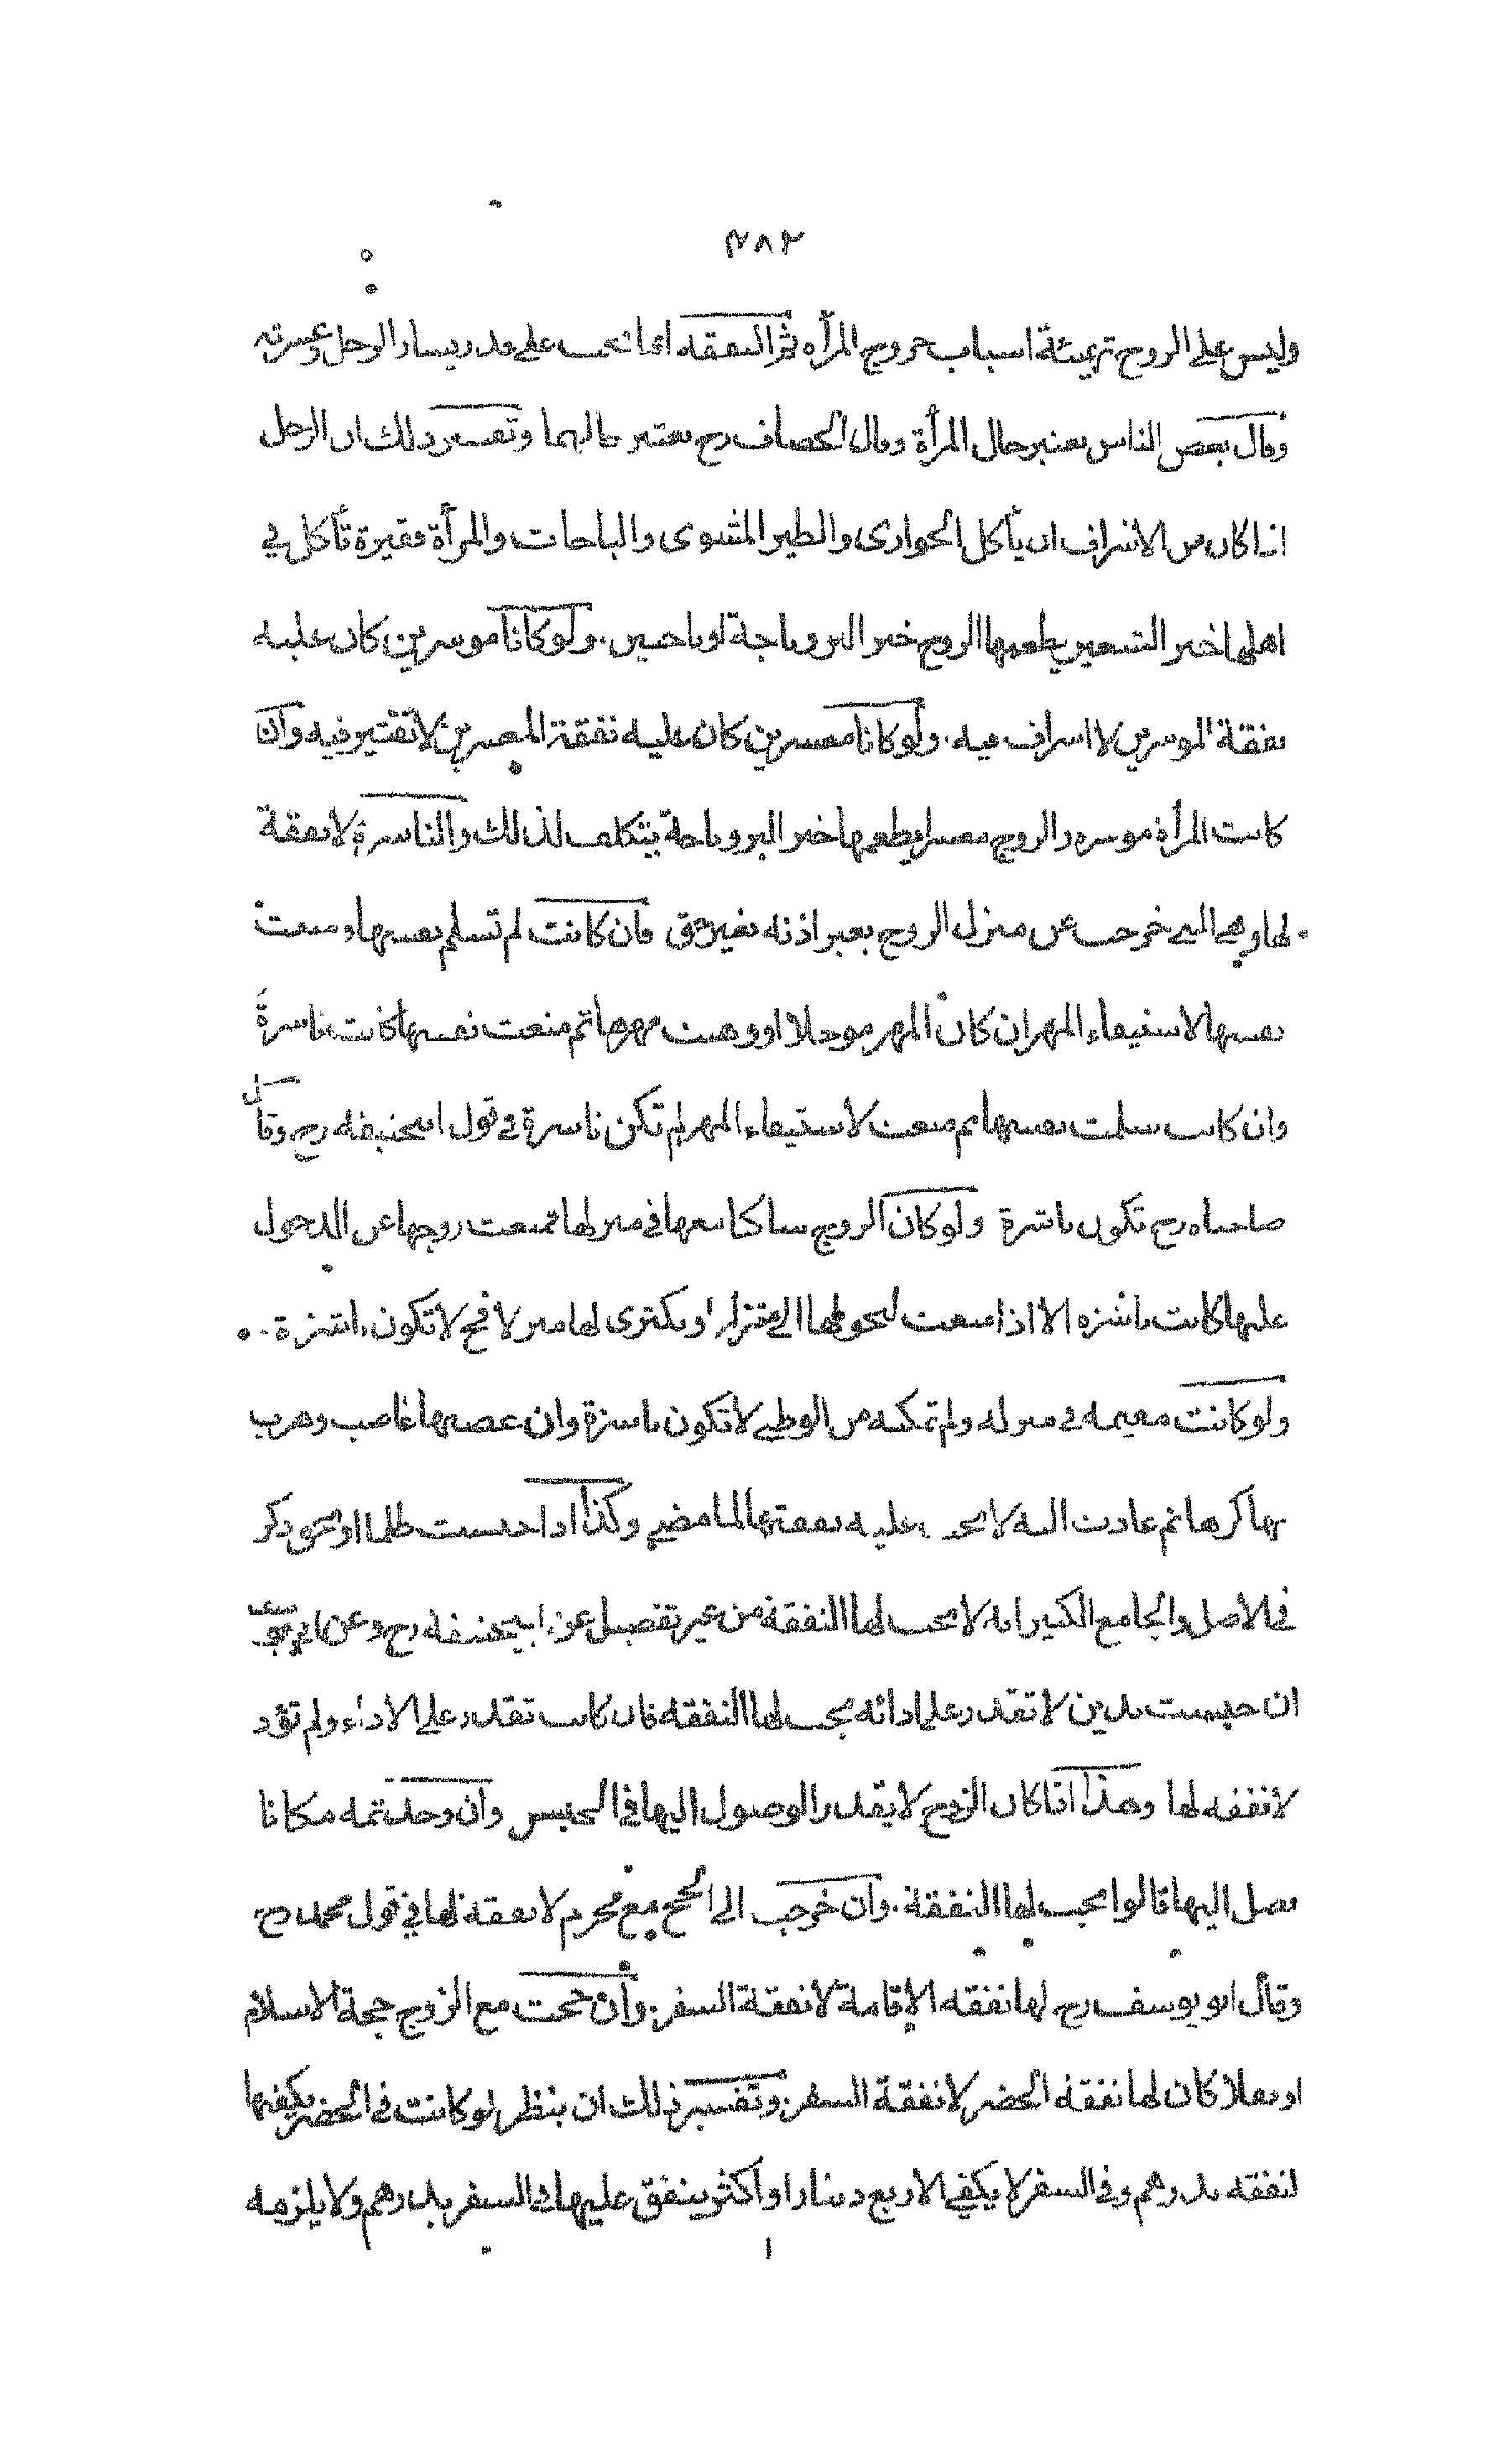 ٣٨٢
وليس على الزوج تهيئة اسباب خروج المرأه ثم النفقه انما تجب على قدر يسار الرجل وعسرته
وقال بعض الناس يعتبر حال المرأة وقال الخصاف رح يعتبر حالهما وتفسير ذلك ان الرجل
اذا كان من الاشراف ان يأكل الحوارى والطير المشوى والباجات والمرأة فقيرة تأكل في
اهلها خبز الشعير يطعمها الزوج خبز البر وباجة او باجتين. ولو كانا موسرين كان عليه
نفقة الموسرين لا اسراف فيه. ولو كانا معسرين كان عليه نفقة المعسرين لا تقتير فيه وان
كانت المرأة موسره والزوج معسرا يطعمها خبز البر وباجة يتكلف لذلك والناشزة لا نفقة
لها وهي التي خرجت عن منزل الزوج بغير اذنه بغير حق فان كانت لم تسلم نفسها ومنعت
نفسها لاستيفاء المهر ان كان المهر موجلا او وهبت مهرها ثم منعت نفسها كانت ناشزة
وان كانت سلمت نفسها ثم منعت لاستيفاء المهر لم تكن ناشزة في قول ابيحنيفه رح وقال
صاحباه رح تكون ناشزة ولو كان الزوج ساكنا معها في منزلها فمنعت زوجها عن الدخول
عليها كانت ناشزه الا اذا منعت ليحولها الى منزله او يكترى لها منزلا فح لا تكون ناشزة
ولو كانت مقيمه في منزله ولم تمكنه من الوطي لا تكون ناشزة وان غصبها غاصب وهرب
بها كرها ثم عادت اليه لا يجب عليه نفقتها لما مضى وكذا اذا حبست ظلما او بحق ذكر
في الاصل والجامع الكبير انه لا يجب لها النفقة من غير تفصيل عن ابيحنيفة رح وعن ابي يوسف
ان حبست بدين لا تقدر على ادائه يجب لها النفقه فان كانت تقدر على الاداء ولم تؤد
لا نفقه لها وهذا اذا كان الزوج لا يقدر الوصول اليها في الحبس وان وجد ثمه مكانا
يصل اليها قالوا يجب لها النفقة. وان خرجت الى الحج مع محرم لا نفقة لها في قول محمد رح
وقال ابو يوسف رح لها نفقه الاقامة لا نفقة السفر. وان حجت مع الزوج حجة الاسلام
او نفلا كان لها نفقة الحضر لا نفقة السفر. وتفسير ذلك ان ينظر لو كانت في الحضر يكفيها
لنفقه بدرهم وفي السفر لا يكفي الا ربع دينار او اكثر ينفق عليها في السفر بدرهم ولا يلزمه